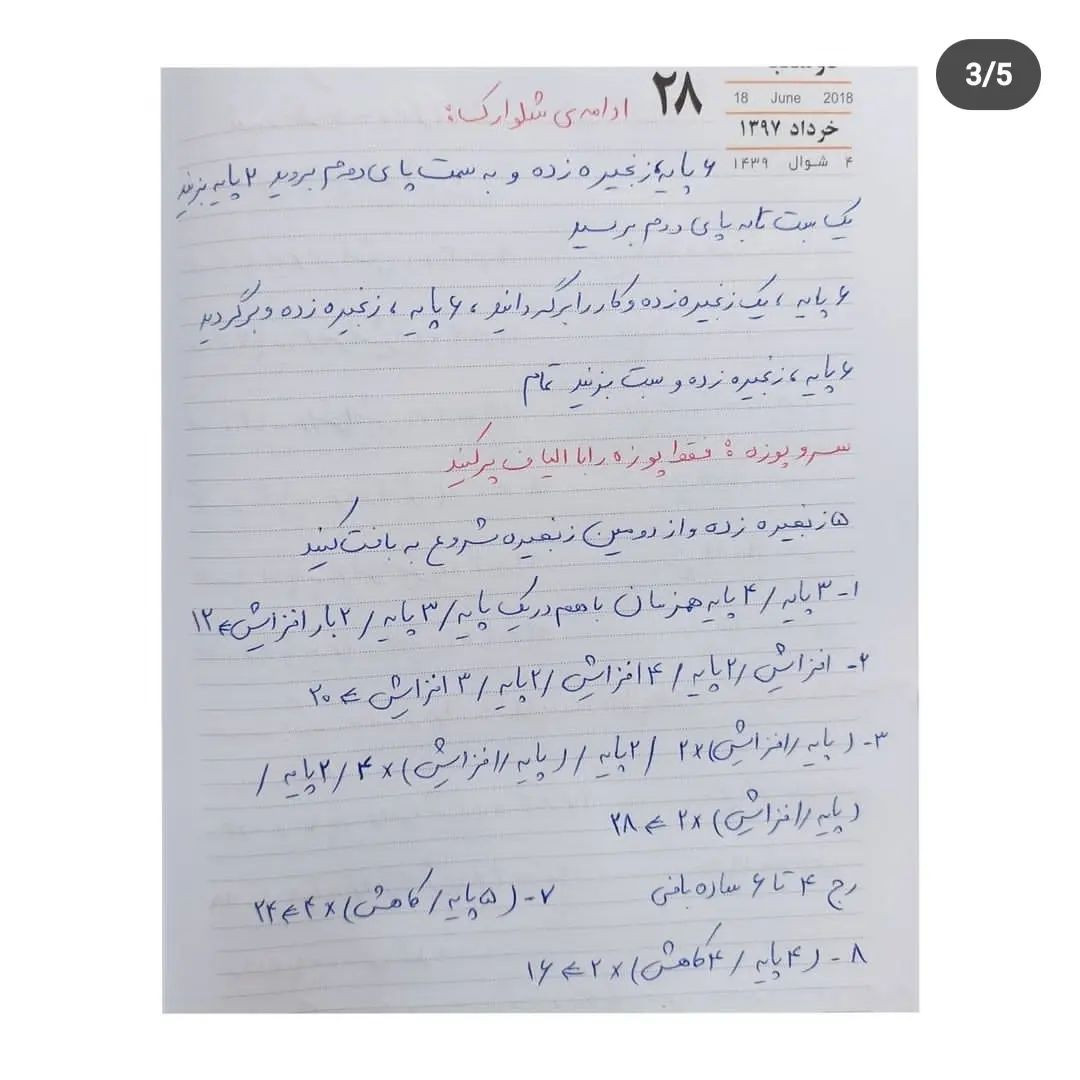 3/5
۲۸
18 June 2018
خرداد ۱۳۹۷
۴ شوال ۱۴۳۹
ادامه‌ی شلوارک:
۶ پایه، زنجیره زده و به سمت پای دوم بروید ۲ پایه بزنید
یک ست تا به پای دوم برسید
۶ پایه، یک زنجیره زده و کار را برگردانید، ۶ پایه، زنجیره زده و برگردید
۶ پایه، زنجیره زده و ست بزنید تمام
سر و پوزه: فقط پوزه را با الیاف پر کنید
۵ زنجیره زده و از دومین زنجیره شروع به بافت کنید
۱- ۳ پایه / ۴ پایه همزمان باهم در یک پایه / ۳ پایه / ۲ بار افزایش ⇐ ۱۲
۲- افزایش / ۲ پایه / ۴ افزایش / ۲ پایه / ۳ افزایش ⇐ ۲۰
۳- (پایه / افزایش) × ۲ / ۲ پایه / (پایه / افزایش) × ۴ / ۲ پایه /
(پایه / افزایش) × ۲ ⇐ ۲۸
رج ۴ تا ۶ ساده بافی
۷- (۵ پایه / کاهش) × ۴ ⇐ ۲۴
۸- (۴ پایه / ۴ کاهش) × ۲ ⇐ ۱۶